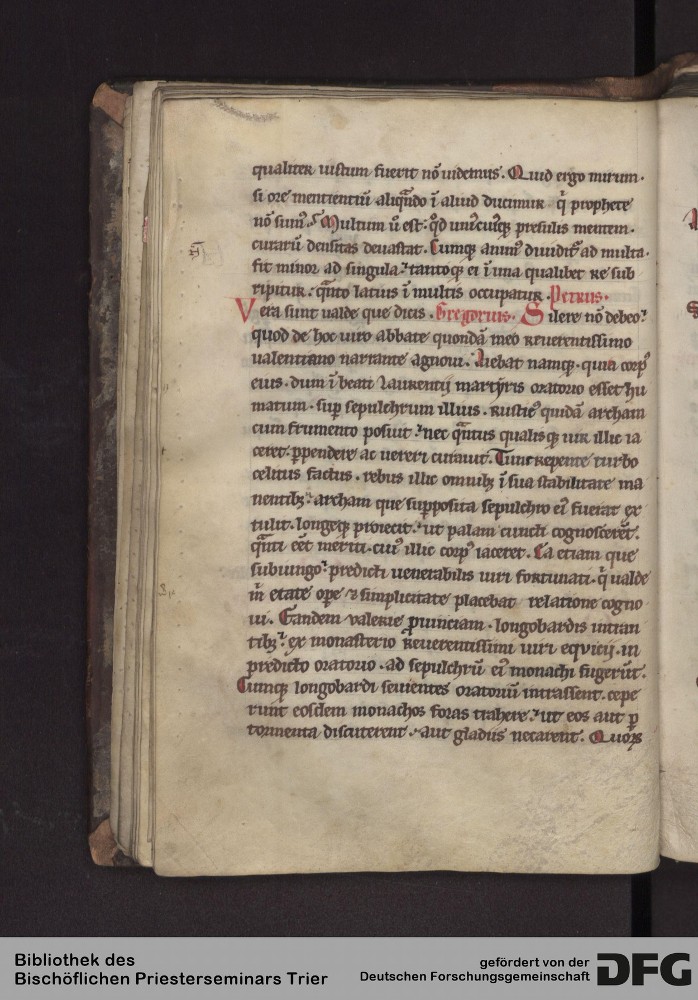 qualiter iustum fuerit nō uidemus. Quid ergo mirum.
si ore mentientiū aliqn̄do ī aliud ducimur q̄ prophete
nō sum9. Multum ū est. qd̄ unicuiq; presulis mentem.
curarū densitas deuastat. Cumq; anim9 diuidit̄ ad multa.
fit minor ad singula. tantoq; ei ī una qualibet re sub
ripitur. qn̄to latius ī multis occupatur. Petrus.
Vera sunt ualde que dicis. Gregorius. Silere nō debeo.
quod de hoc uiro abbate quondā meo reuerentissimo
ualentiano narrante agnoui. Aiebat namq;. quia corp9
eius. dum ī beati laurentij martyris oratorio esset hu
matum. sup̄ sepulchrum illius. rustic9 quidā archam
cum frumento posuit. nec qn̄tus qualisq; uir illic ia
ceret. ꝑpendere ac uereri curauit. Tunc repente turbo
celitus factus. rebus illic omnib; ī sua stabilitate ma
nentib;. archam que supposita sepulchro ei9 fuerat ex
tulit. longeq; proiecit. ut palam cuncti cognosceret̄.
qn̄ti eēt meriti. cui9 illic corp9 iaceret. Ea etiam que
subiungo. predicti uenerabilis uiri fortunati. q̄ ualde
m̄ etate ope 7 simplicitate placebat relatione cogno
ui. Eandem valerie ꝓuinciam. longobardis intran
tib;. ex monasterio reuerentissimi uiri eqvicij. in
predicto oratorio. ad sepulchrū ei9 monachi fugerūt.
Cumq; longobardi seuientes oratoriū intrassent. cepe
runt eosdem monachos foras trahere. ut eos aut ꝑ
tormenta discuterent. aut gladiis necarent. Quorꝝ
Bibliothek des
Bischöflichen Priesterseminars Trier
gefördert von der
Deutschen Forschungsgemeinschaft
DFG